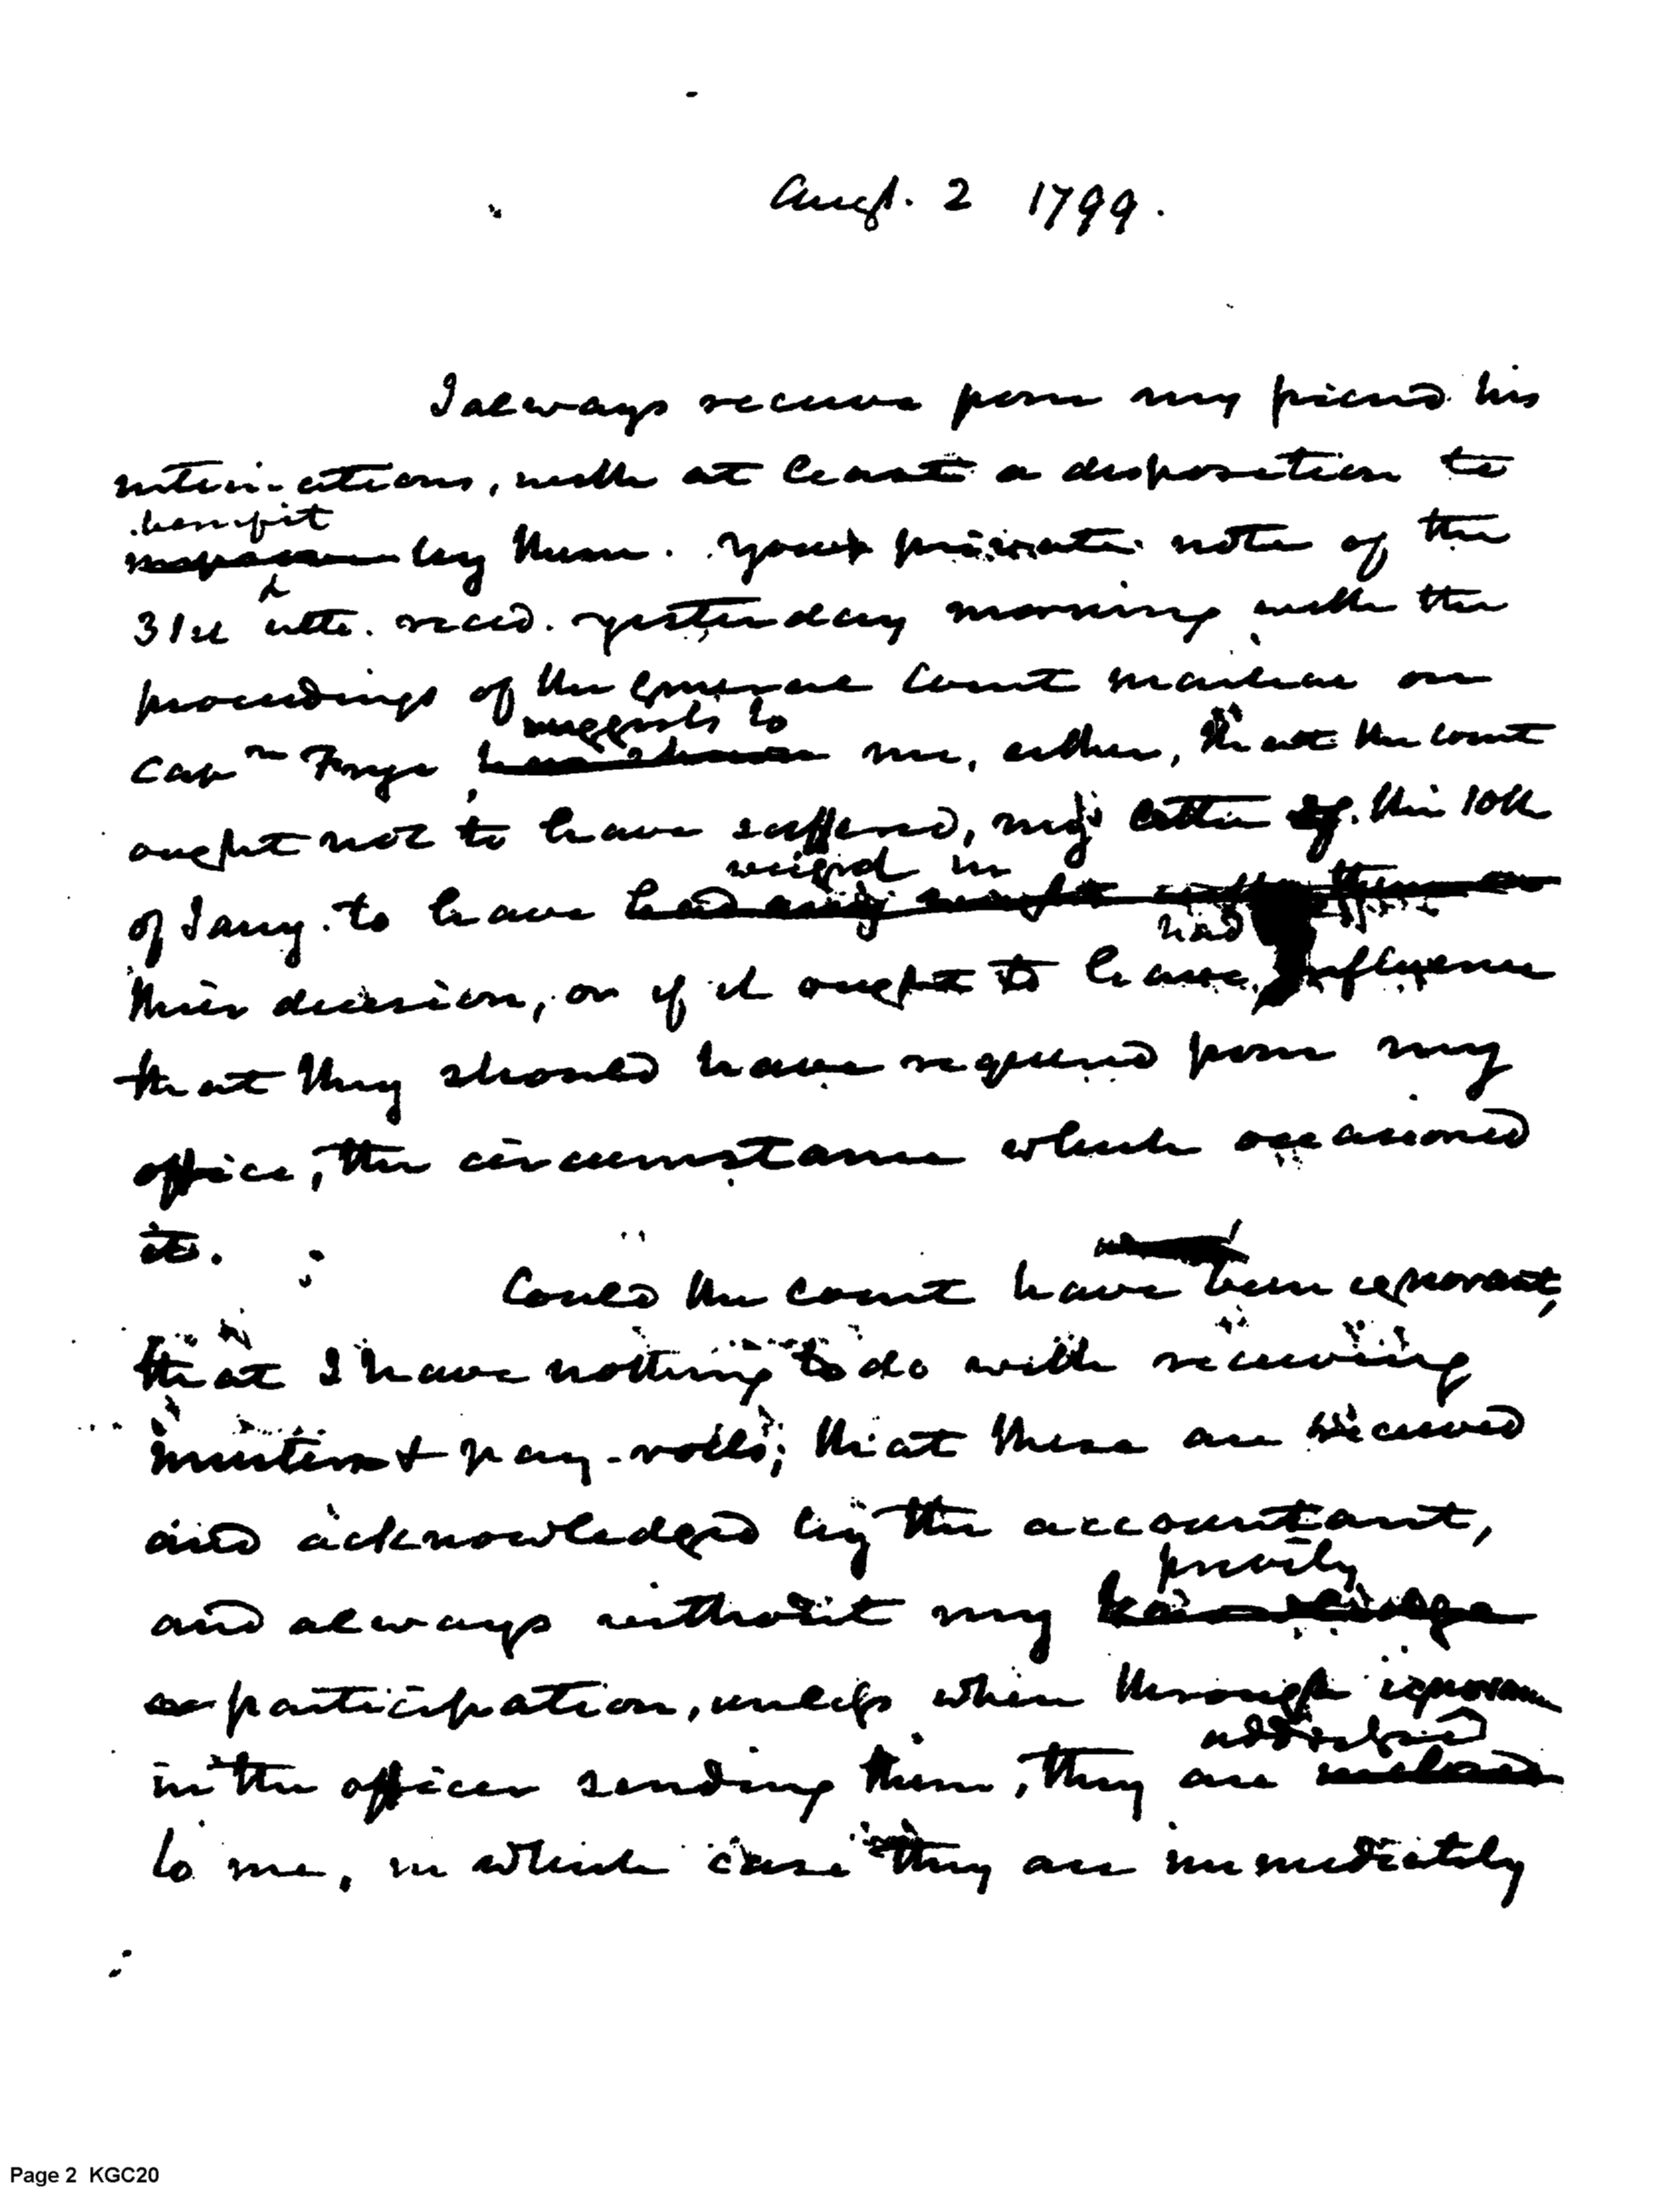 Augt. 2 1799.
I always receive from my friend his
intimations, with at least a disposition to
benefit
by them. Your private note of the
31st ulto. recd. yesterday morning with the
proceedings of the general court martial on
suggests to
Capn Frye, me, either, that the court
ought not to have suffered, my letter of the 10th
weighed in
of Jany. to have had any weight
had
their decision, or if it ought to have influence
that they should have required from my
office, the circumstance which occasioned
it.
Could the court have been ignorant,
that I have nothing to do with receiving
musters & pay-rolls; that these are received
and acknowledged by the accountant,
privity
and always without my knowledge
or participation, unless when through ignorance
addressed
in the officer sending them, they are inclosed
to me, in which case they are immediately
Page 2 KGC20